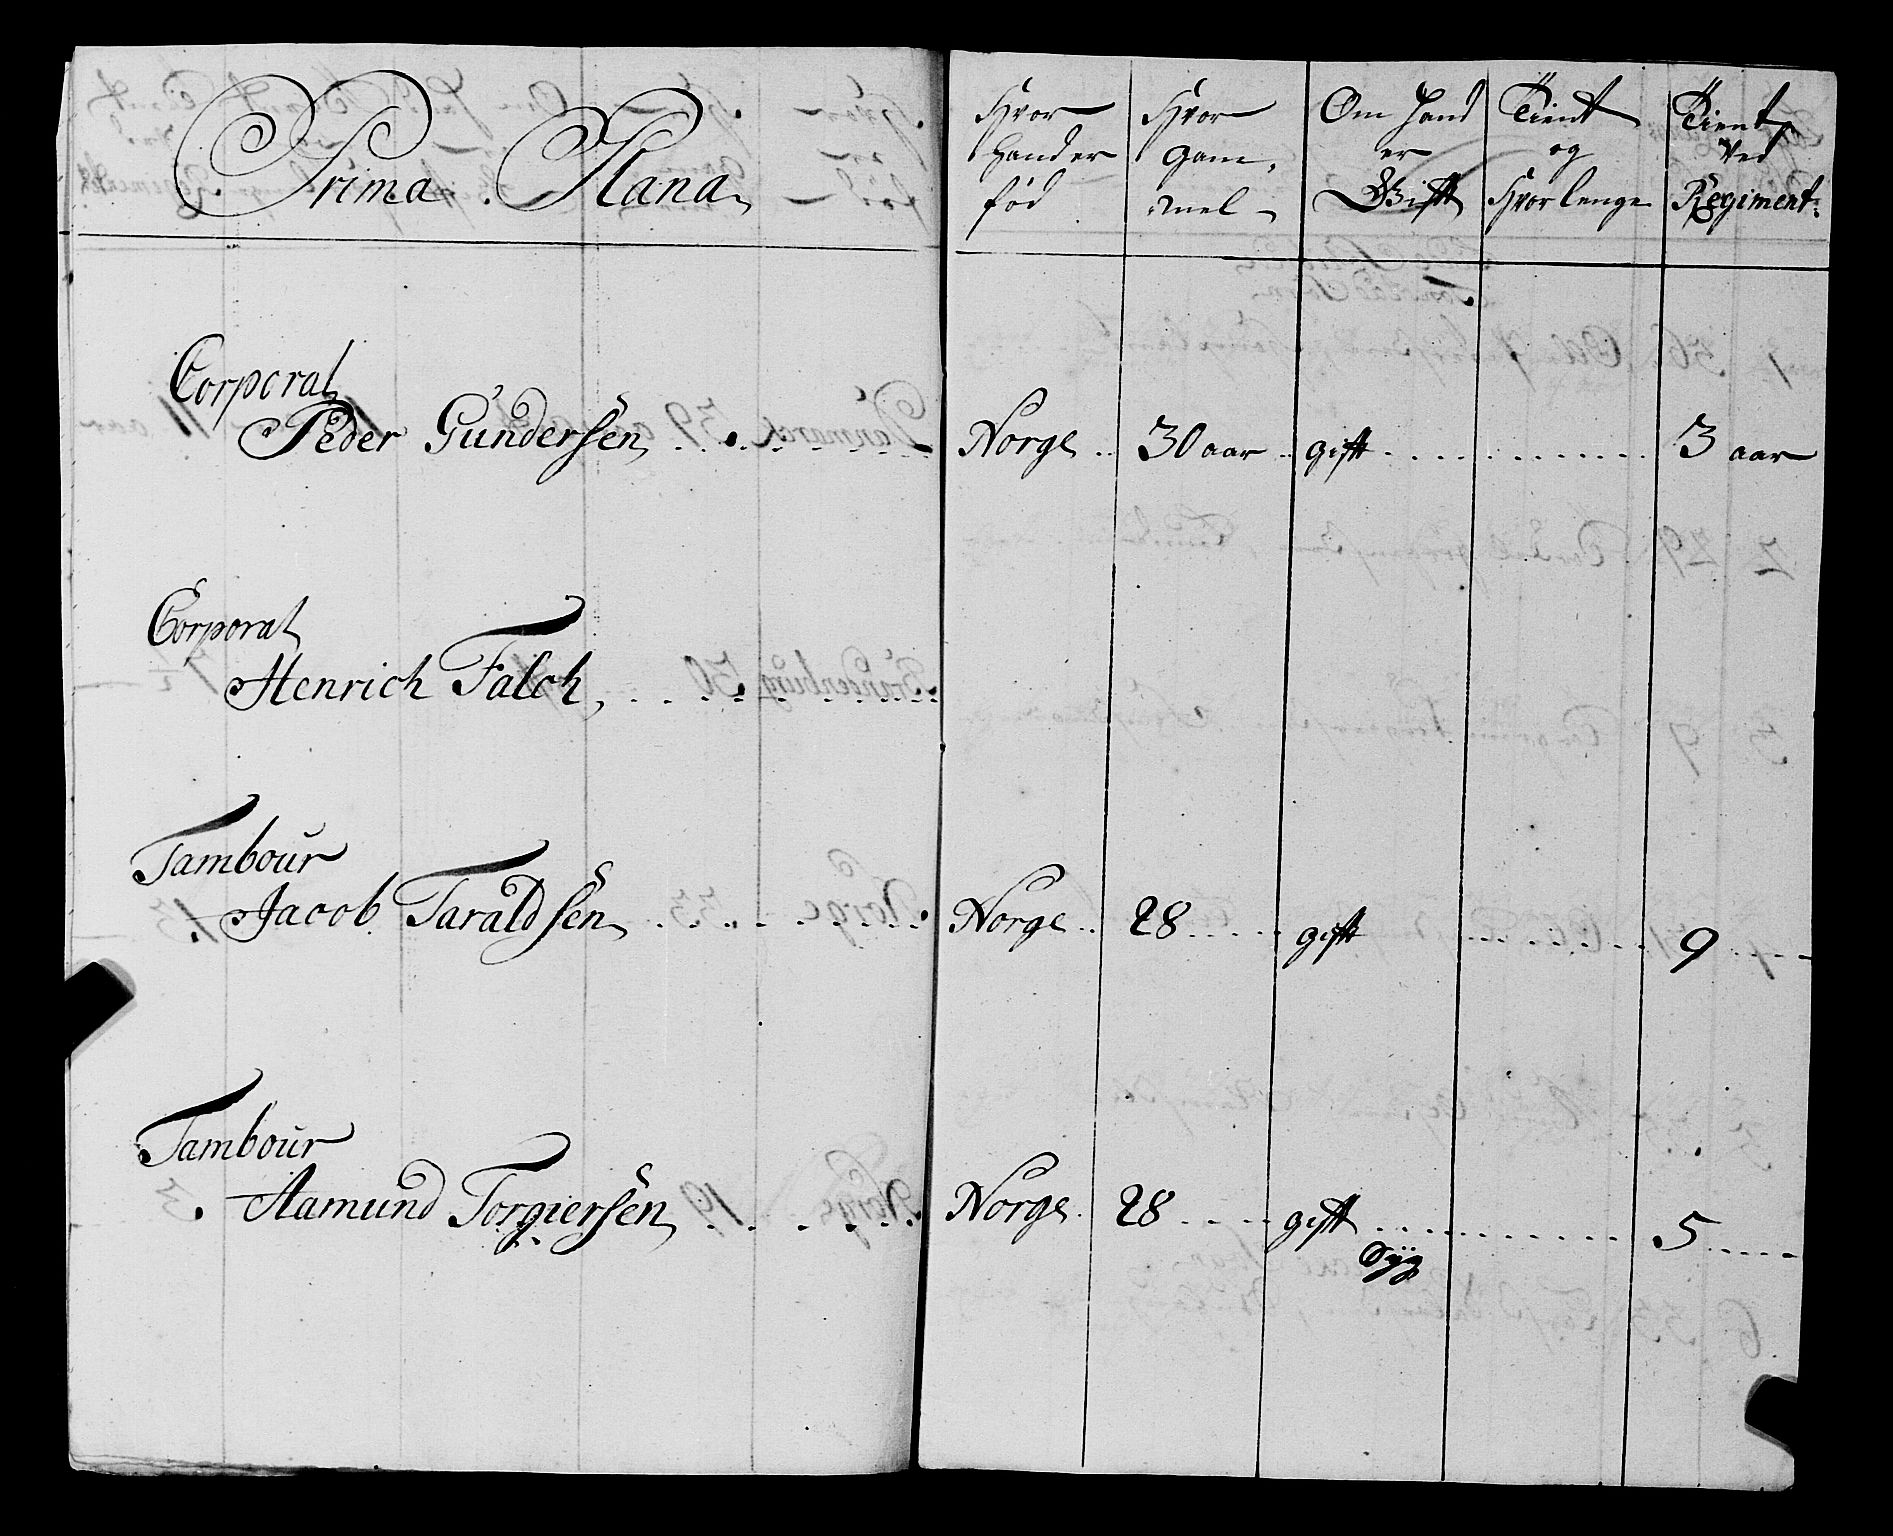 Prima Plana
Hvor Hand er fød
Hvor Gammel
Om Hand er Gift
Tient og Hvor lenge
Tient ved Regiment:
Corporal
Peder Gundersen Norge 30 aar gift 3 aar
Corporal
Henrich Falch
Tambour
Jacob Taraldsen Norge 28 gift 9
Tambour
Aamund Torgiersen Norge 28 gift 5
Syg